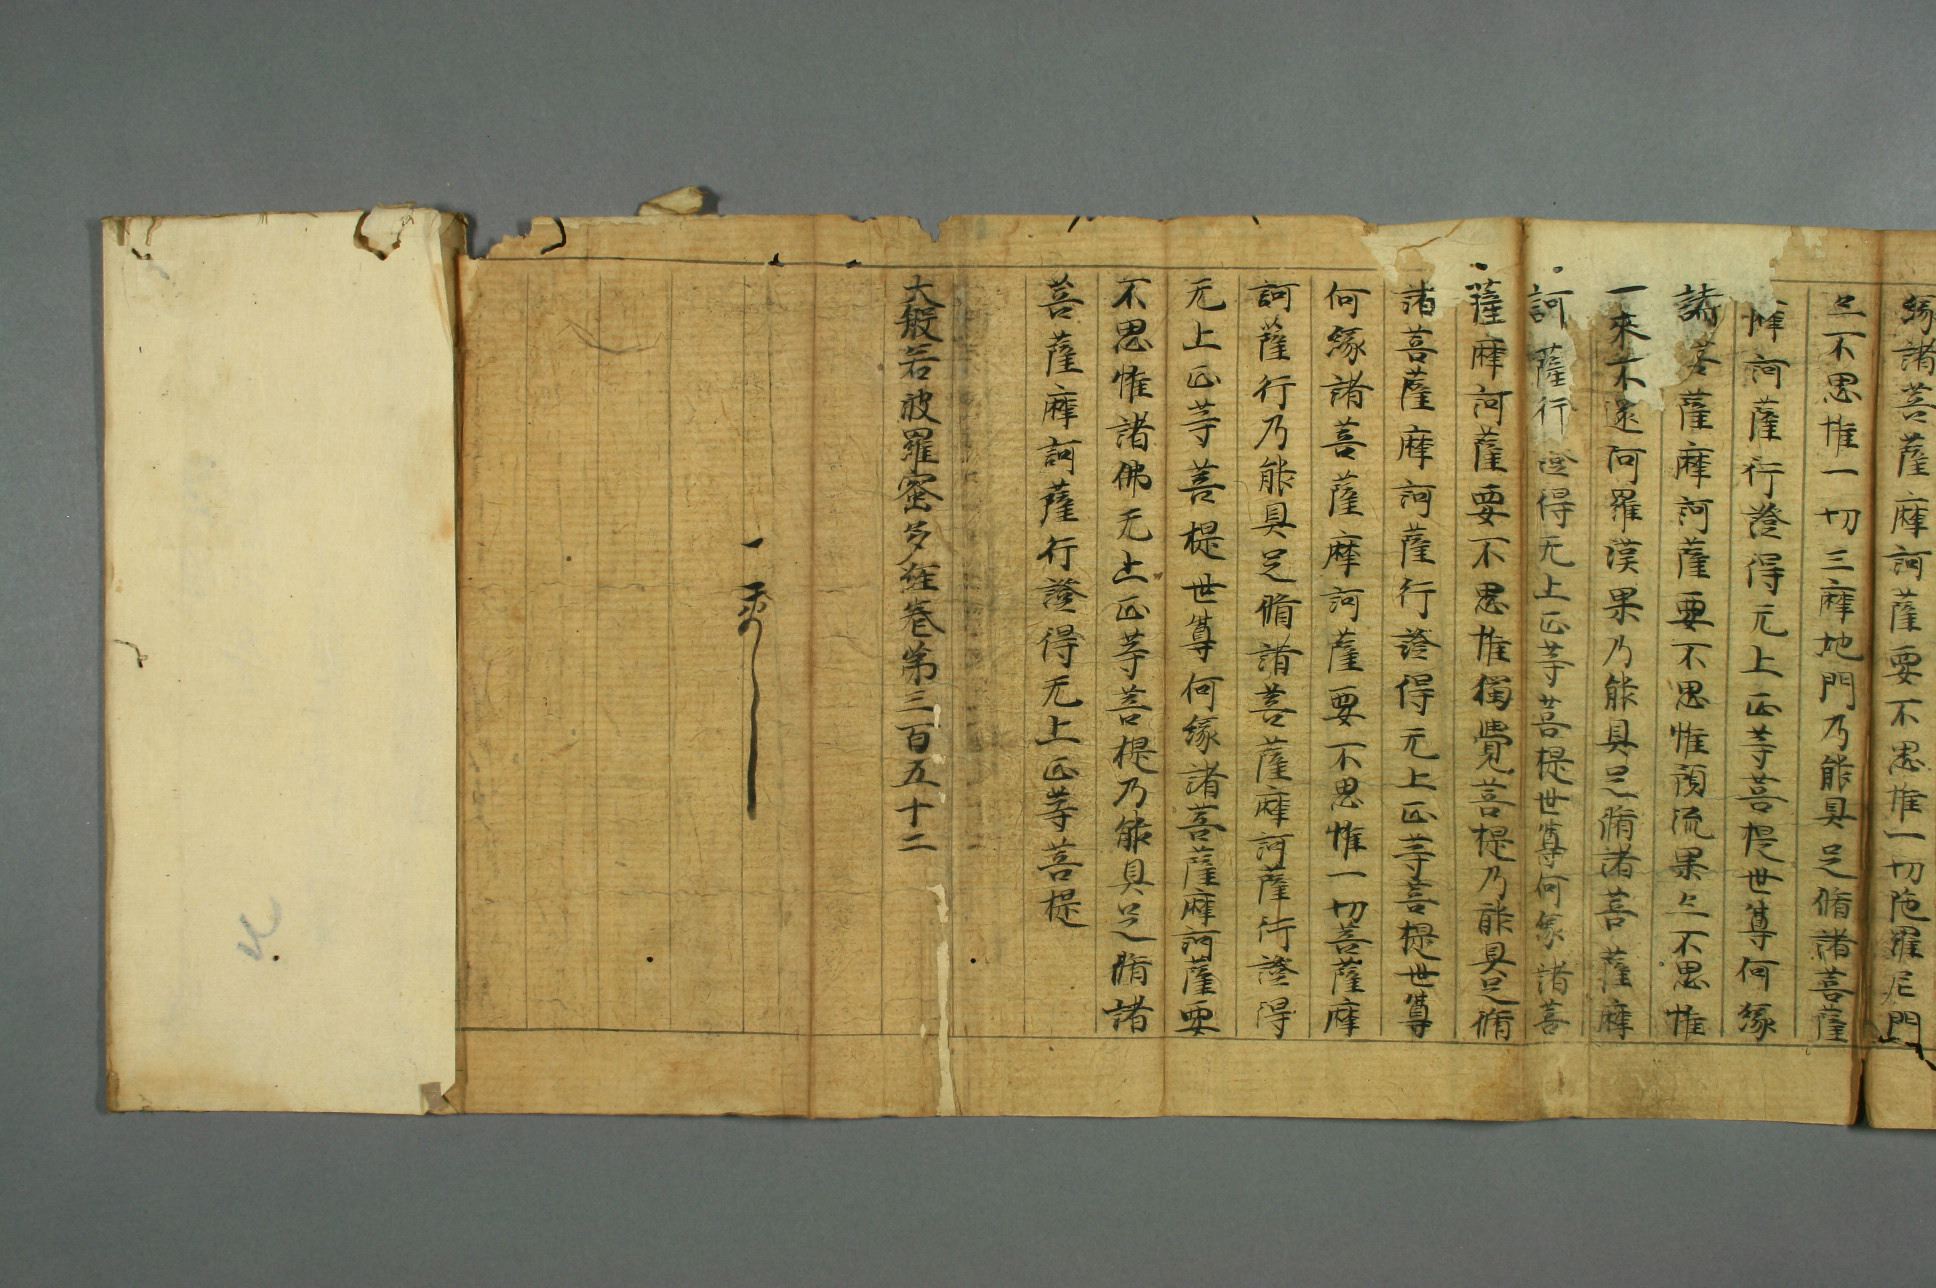 緣諸菩薩摩訶薩要不思惟一切陁羅尼門
亦不思惟一切三摩地門乃能具足脩諸菩薩
摩訶薩行證得无上正等菩提世尊何緣
諸菩薩摩訶薩要不思惟預流果亦不思惟
一來不還阿羅漢果乃能具足脩諸菩薩摩
訶薩行證得无上正等菩提世尊何緣諸菩
薩摩訶薩要不思惟獨覺菩提乃能具足脩
諸菩薩摩訶薩行證得无上正等菩提世尊
何緣諸菩薩摩訶薩要不思惟一切菩薩摩
訶薩行乃能具足脩諸菩薩摩訶薩行證得
无上正等菩提世尊何緣諸菩薩摩訶薩要
不思惟諸佛无上正等菩提乃能具足脩諸
菩薩摩訶薩行證得无上正等菩提
大般若波羅蜜多經卷第三百五十二
一